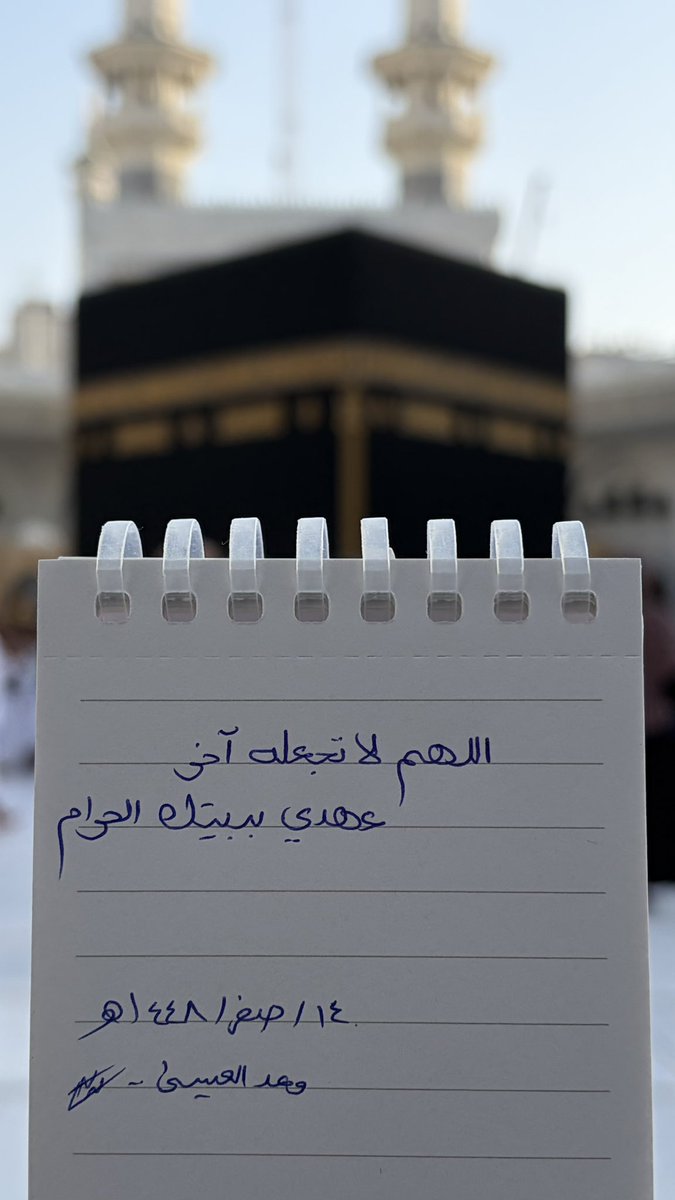 اللهم لا تجعله آخر
عهدي ببيتك الحرام
١٤ / صفر / ١٤٤٨هـ
وعد العيسى -